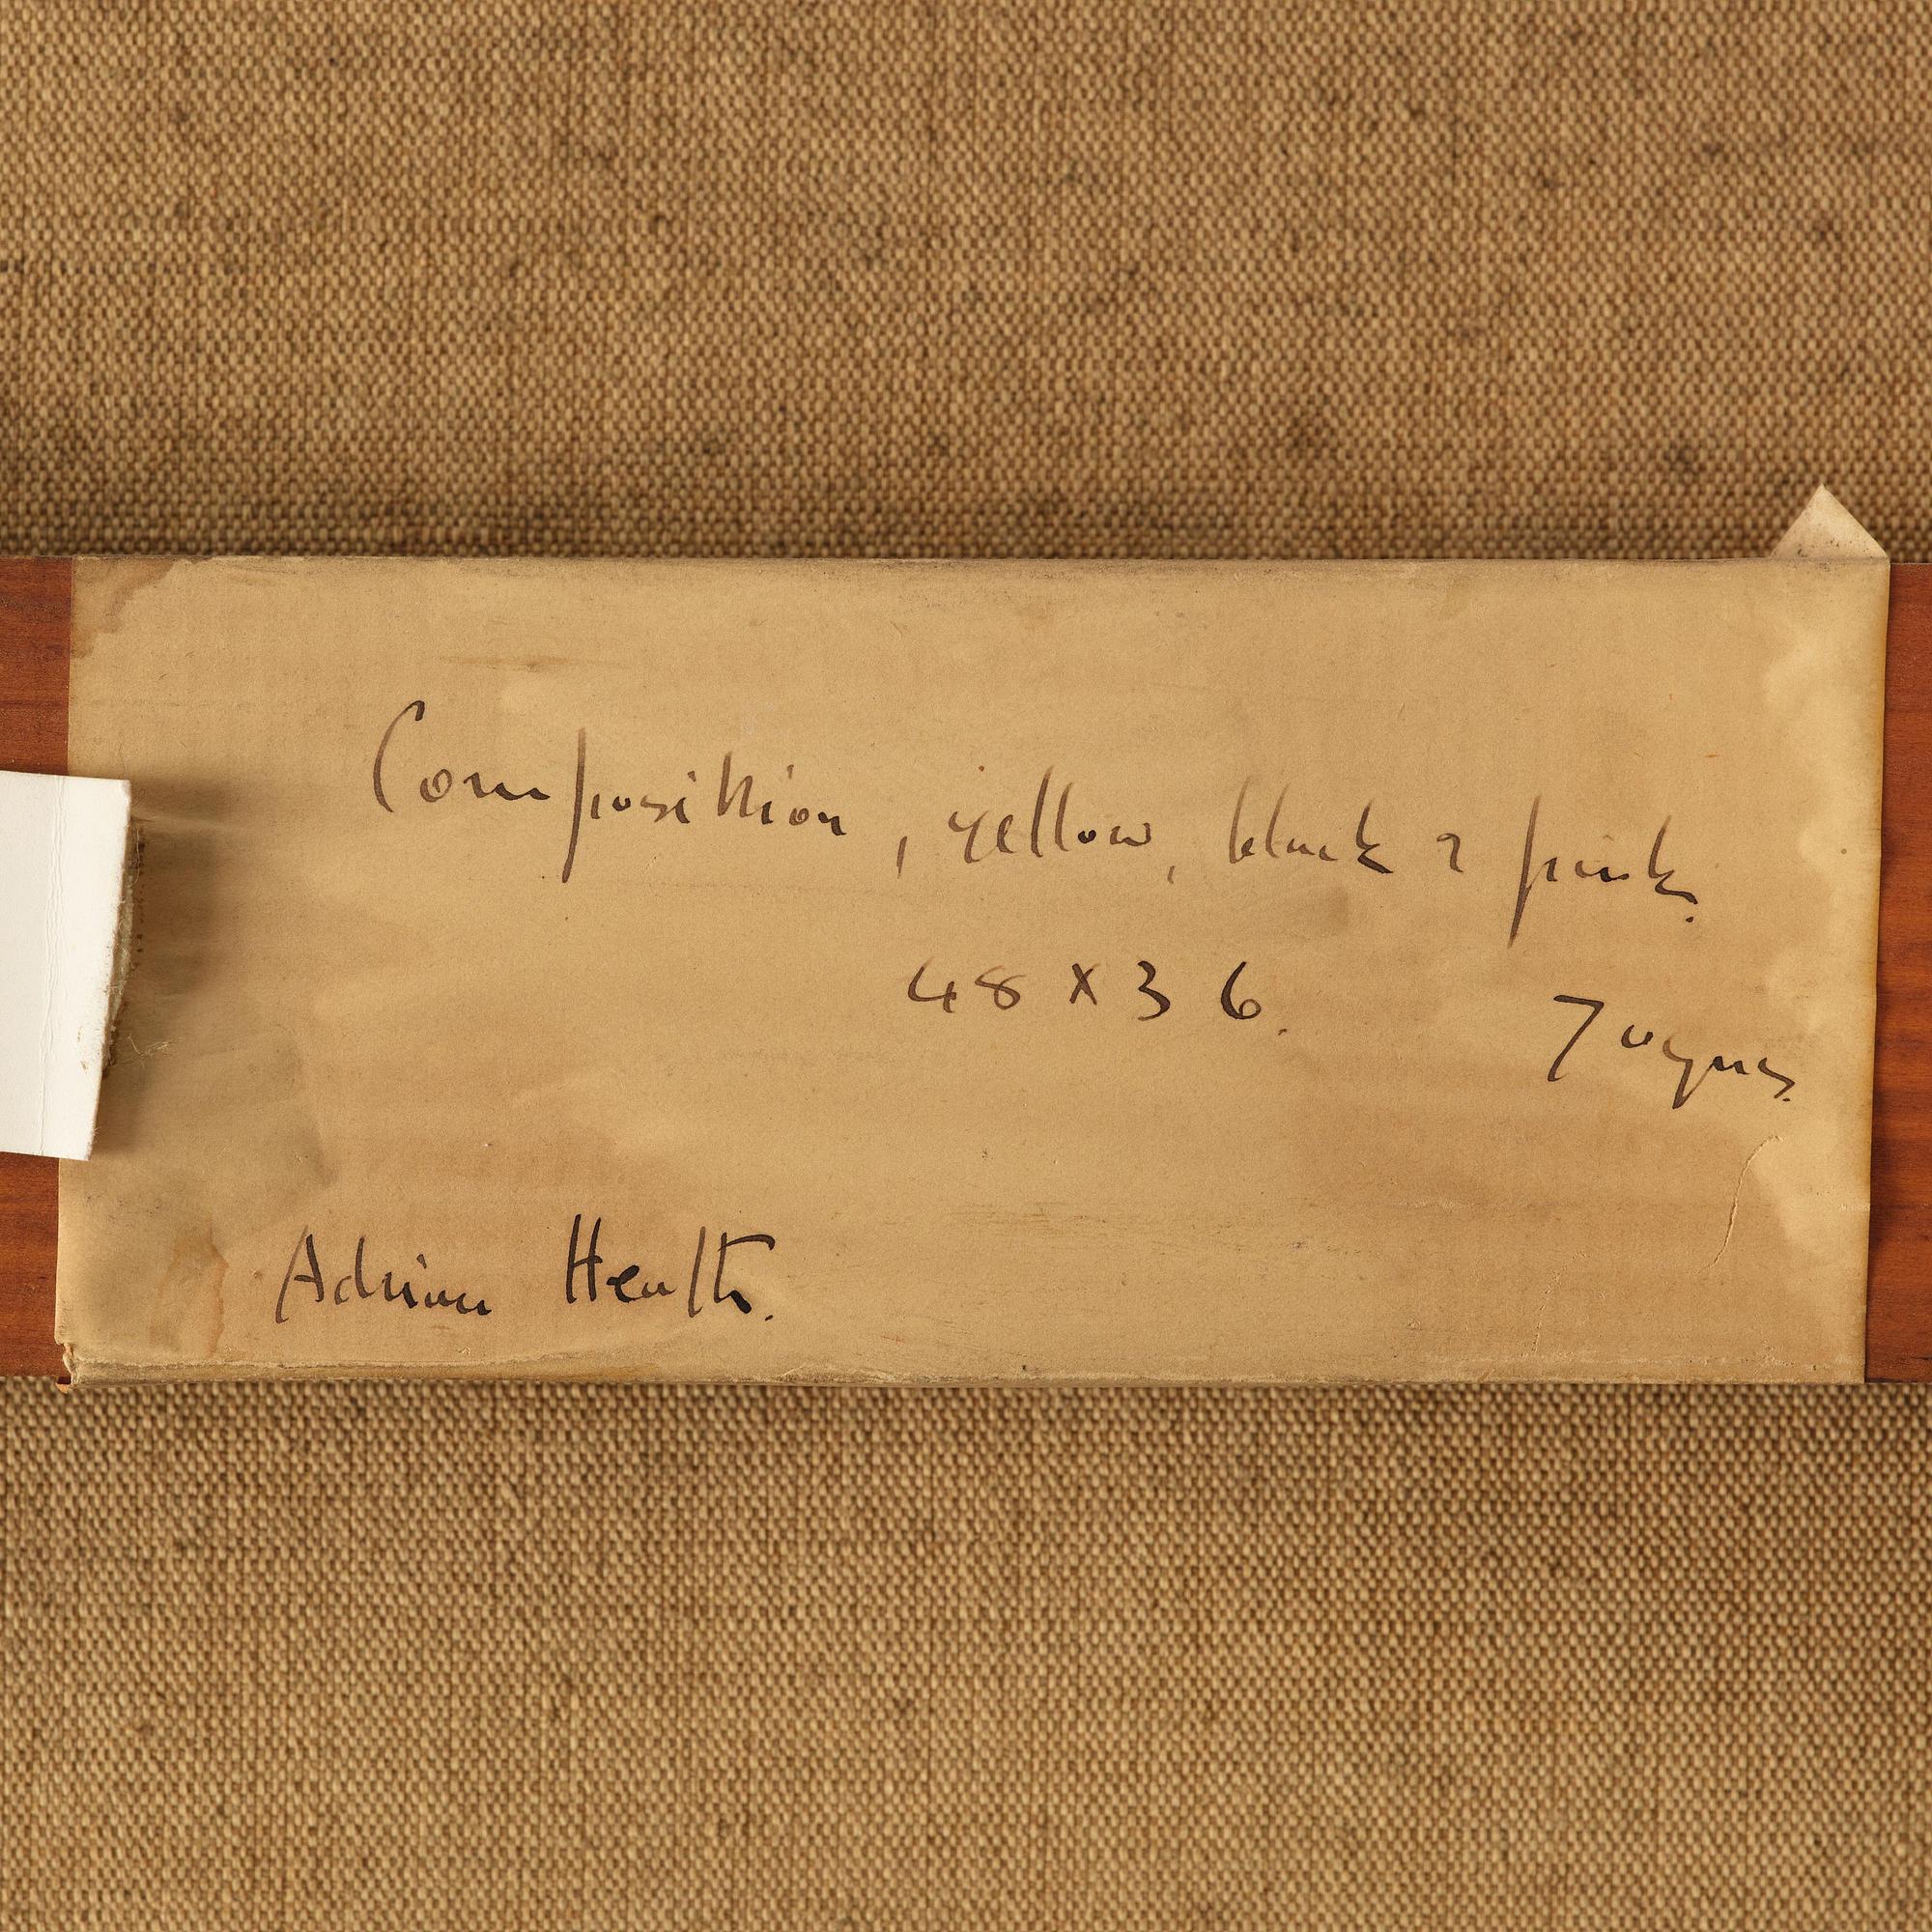 Composition, yellow, black & pink.
48 x 36.
7 ogns.
Adrian Heath.